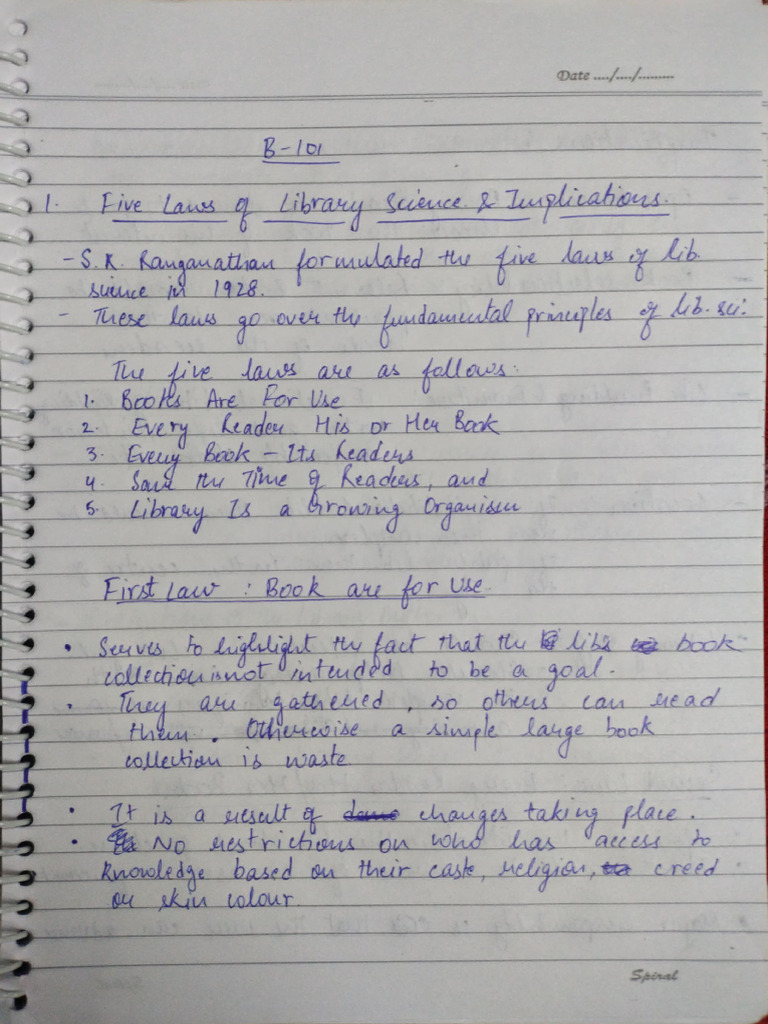 Date ..../..../.........
B-101
1. Five Laws of Library Science & Implications.
- S.R. Ranganathan formulated the five laws of lib.
science in 1928.
- These laws go over the fundamental principles of lib. sci.
The five laws are as follows:
1. Books Are For Use
2. Every Reader His or Her Book
3. Every Book - Its Readers
4. Save the Time of Readers, and
5. Library Is a Growing Organism
First Law : Book are for Use
• Serves to highlight the fact that the libs book
collection is not intended to be a goal.
• They are gathered, so others can read
them. Otherwise a simple large book
collection is waste
• It is a result of changes taking place.
• No restrictions on who has access to
knowledge based on their caste, religion, creed
or skin colour.
Spiral